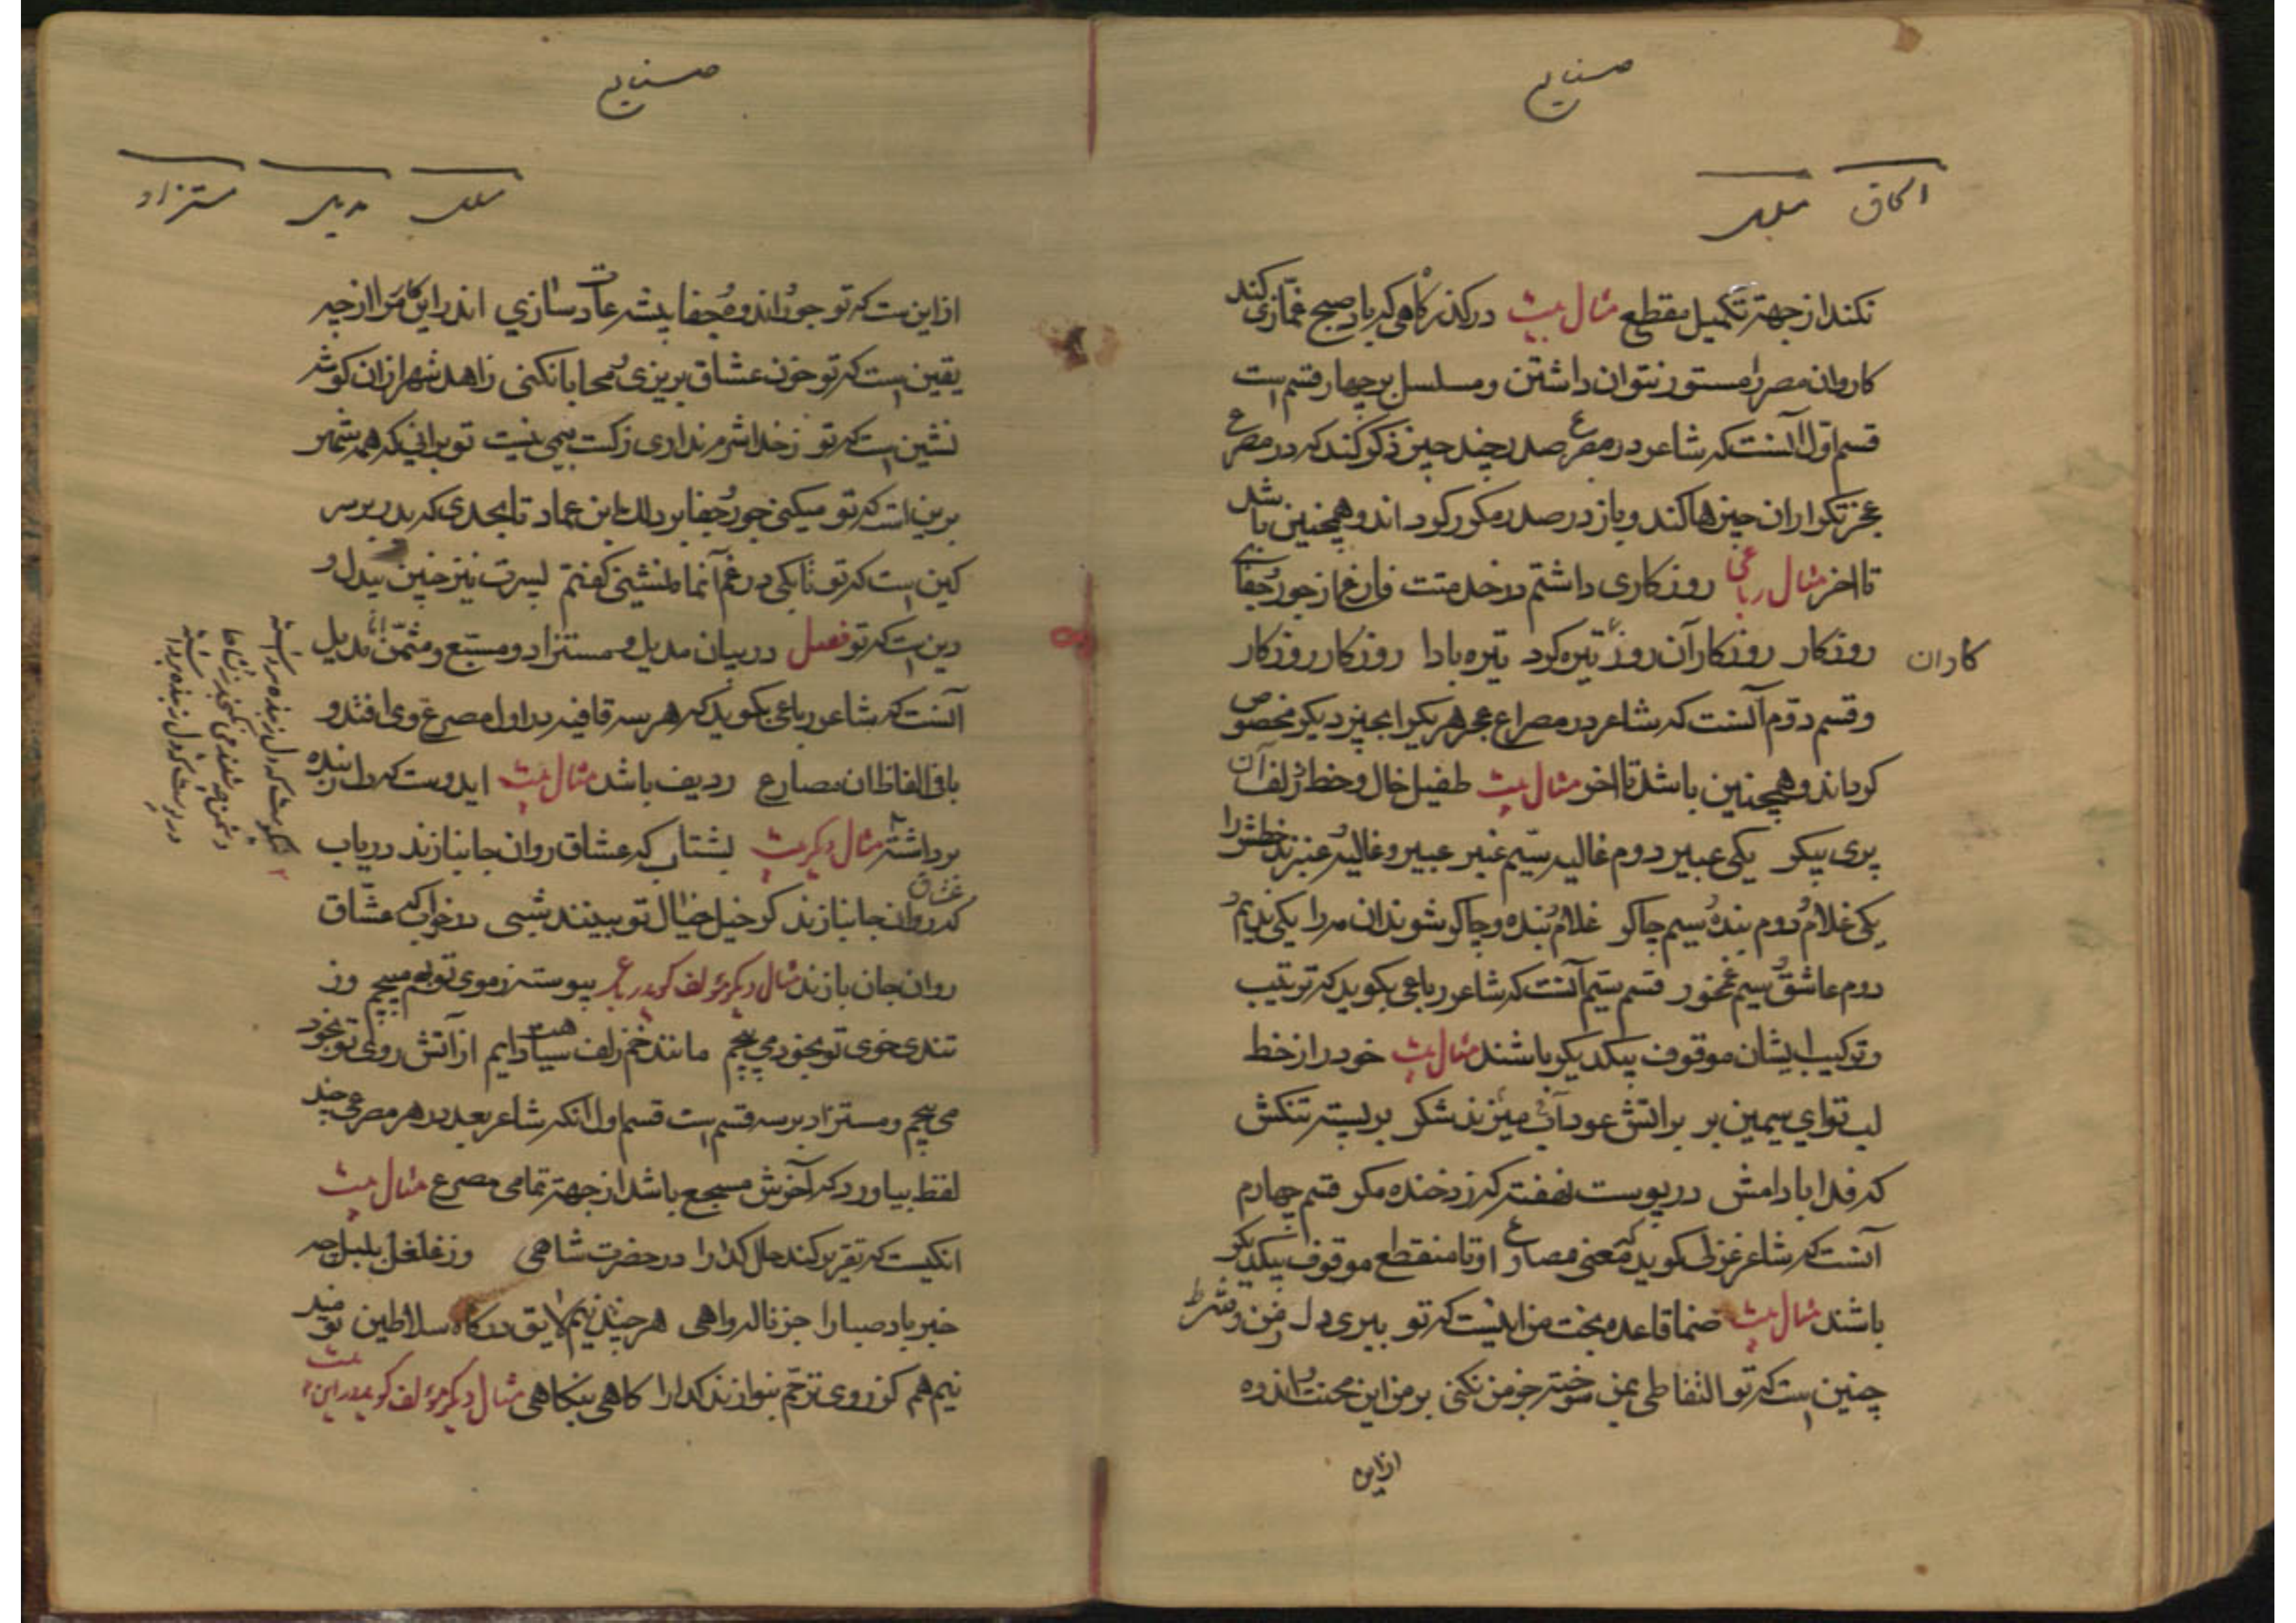 صنایع
الحاق مسلسل
نکند از جهة تکمیل مقطع مثال بیت در کذر کاهی که باد صبح غمازی کند
کاروان مصر را مستور نتوان داشتن و مسلسل بر چهار قسم است
قسم اول آنست که شاعر در مصرع صدر چند چیز ذکر کند که در مصرع
عجز تکرار ان چیزها کند و باز در صدر مکرر کرداند و همچنین باشد
تا اخر مثال رباعی روزکاری داشتم در خدمتت فارغ از جور و جفای
روزکار روزکار آن روز تیره کرد تیره بادا روزکار روزکار
کاران
و قسم دوم آنست که شاعر در مصراع عجز هر یکرا بچیز دیکر مخصوص
کرداند و همچنین باشد تا اخر مثال بیت طفیل خال و خط و زلف آن
پری پیکر یکی عبیر دوم غالیه سیم عنبر عبیر و غالیه و عنبرند خطش را
یکی غلام و دوم بنده و سیم چاکر غلام و بنده و چاکر شوند ان مه را یکی ندیم و
دوم عاشق و سیم غمخور قسم سیم آنست که شاعر رباعی بکوید که ترتیب
و ترکیب ایشان موقوف بیکدیکر باشند مثال بیت خود را از خط
لب تو ای سیمین بر بر اتش عود آب میزند شکر بر پسته تنکش
که فدا بادامش در پوست نهفته کرزد خنده مکر قسم چهارم
آنست که شاعر غزلی کوید که معنی مصارع او تا منقطع موقوف بیکدیکر
باشند مثال بیت صنما قاعده بخت من اینست که تو ببری دل ز من و شرط
چنین است که تو التفاطی بمن سوخته خرمن نکنی بر من این محنت و اندوه
ازین
صنایع
مسلسل مدیل مستزاد
از این ست که تو جور و اندوه و جفا پیشه عادت سازی اندر این کار مرا از چه
یقین است که تو خون عشاق بریزی و محابا نکنی زاهد شهر ازان کوشه
نشین است که تو ز خدا شرم نداری ز کست بیمی نیست تو برانی که همه شهر
برین است که تو میکنی جور و جفا بر دل ابن عماد تا بحدی که پدر بر سر
کین است که تو تا بکی در غم آنماه نشینی کفتم پسرت نیز چنین بیدل و
دین ست که تو فصل در بیان مدیل و مستزاد و مسبع و مثمن اما مدیل
آنست که شاعر رباعی بکوید که هر سه قافیه در اول مصرع وی افتد و
باقی الفاظ ان مصارع ردیف باشد مثال بیت ایدوست که دل ز بنده
برداشته مثال دیکر بیت بشتاب که عشاق روان جانبازند دریاب
که عشاق روان جانبازند کر خیل خیال تو ببینند شبی در خواب که عشاق
روان جان بازند مثال دیکر مؤلف کوید رباعی پیوسته ز موی تو بهم میپیچم وز
تندی خوی تو بخود می پیچم مانند خم زلف سیاهت دایم از آتش روی تو بخود
می پیچم و مستزاد بر سه قسم است قسم اول آنکه شاعر بعد در هر مصرعی چند
لفظ بیاورد که آخرش مسجع باشد از جهة تمامی مصرع مثال بیت
انکیست که تقریر کند حال کدا را در حضرت شاهی وز غلغل بلبل چه
خبر باد صبا را جز ناله و اهی هر چند نیم لایق درکاه سلاطین نومید
نیم هم کز روی ترحم بنوازند کدا را کاهی بنکاهی مثال دیکر مؤلف کوید در این
نیکوست که دل ز بنده برداشته
دشمن چو شنید می نکنجد ز نشاط
در پوست که دل ز بنده برداشته